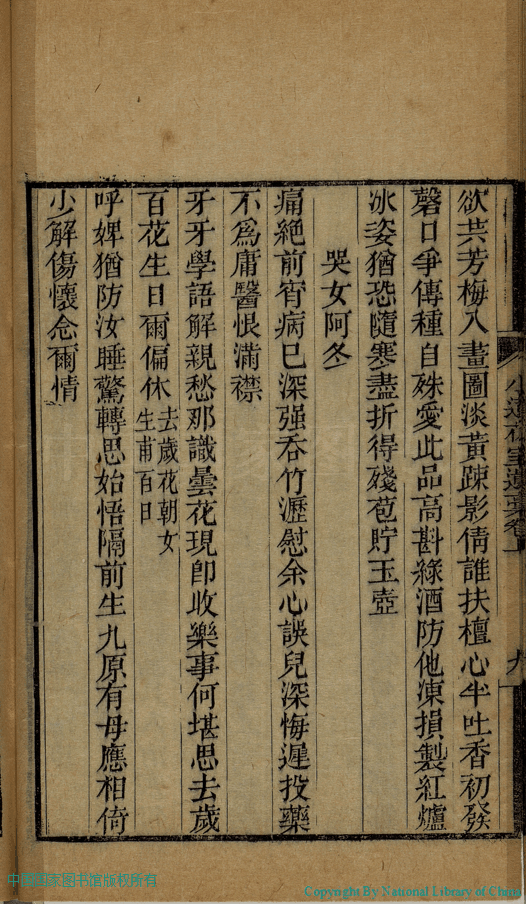 欲共芳梅入畫圖淡黃疎影倩誰扶檀心半吐香初發
磬口爭傳種自殊愛此品高斟綠酒防他凍損製紅爐
冰姿猶恐隨寒盡折得殘苞貯玉壺
哭女阿冬
痛絶前宵病已深强吞竹瀝慰余心誤兒深悔遲投藥
不爲庸醫恨滿襟
牙牙學語解親愁那識曇花現卽收樂事何堪思去歲
百花生日爾偏休去歲花朝女
生甫百日
呼婢猶防汝睡驚轉思始悟隔前生九原有母應相倚
少解傷懷念爾情
小蓮花室遺稾卷上
九
中国国家图书馆版权所有
Copyright By National Library of China